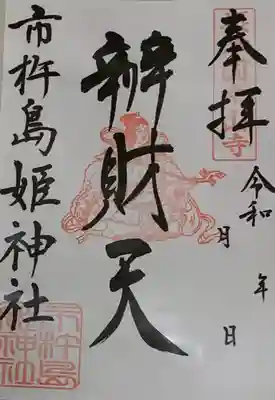 奉拝
令和 年 月 日
辨財天
市杵島姫神社
市杵島
姫神社